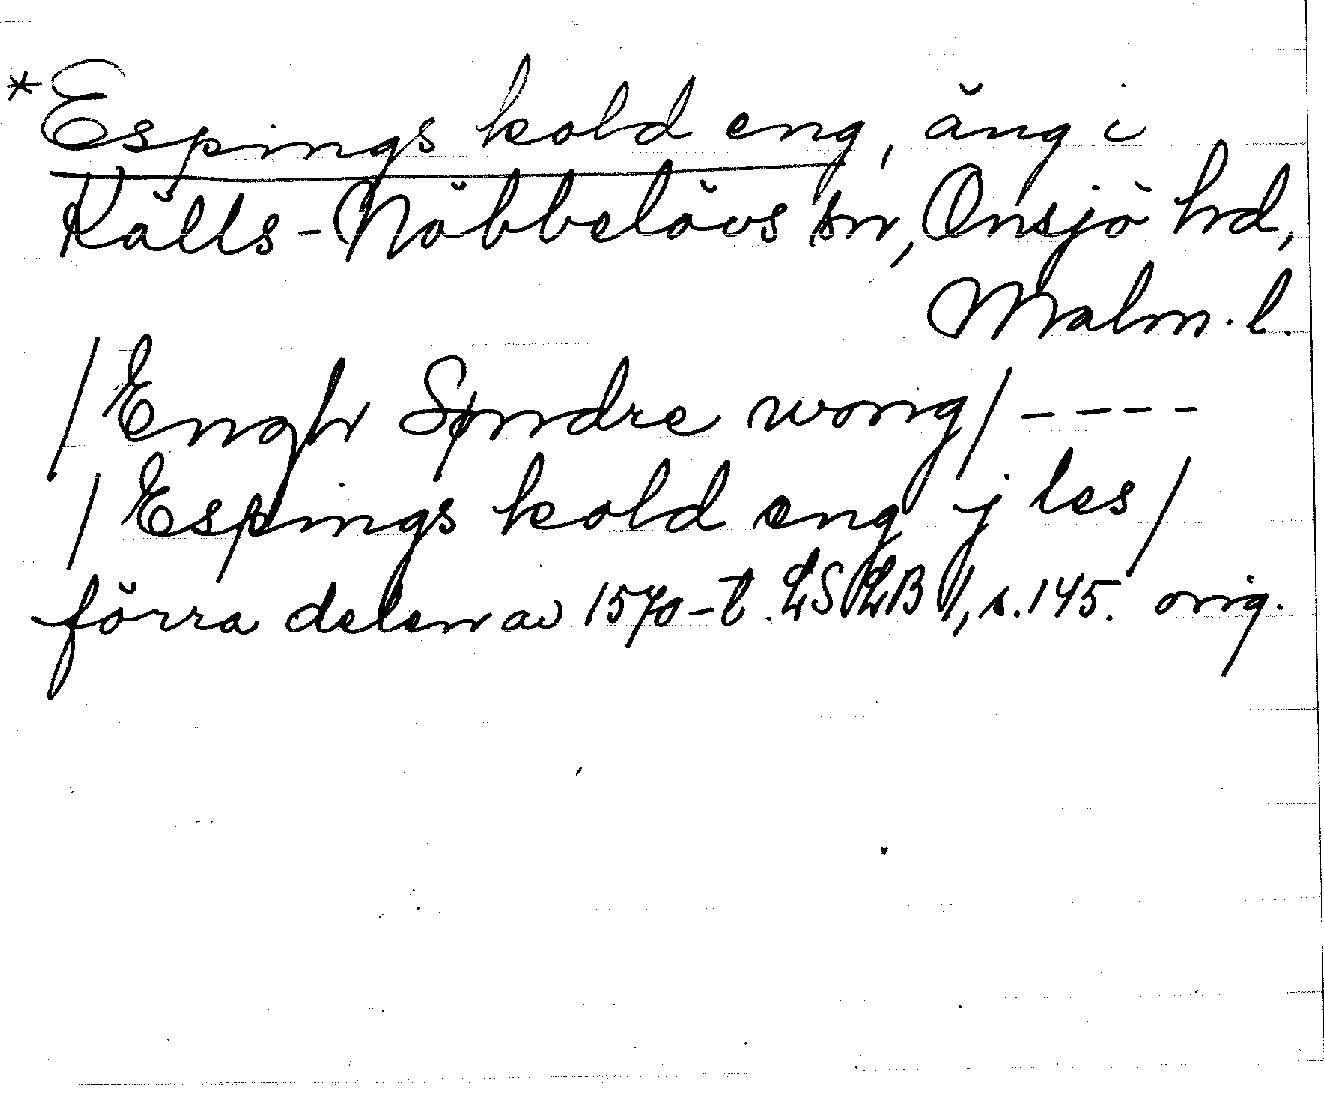 *Espings kold eng, äng i
Källs-Nöbbelövs sn, Onsjö hd,
Malm. l.
/Engh Søndre wong/ ----
/Espings kold eng j les/
förra delen av 1570-t. LSLB I, s. 145. orig.